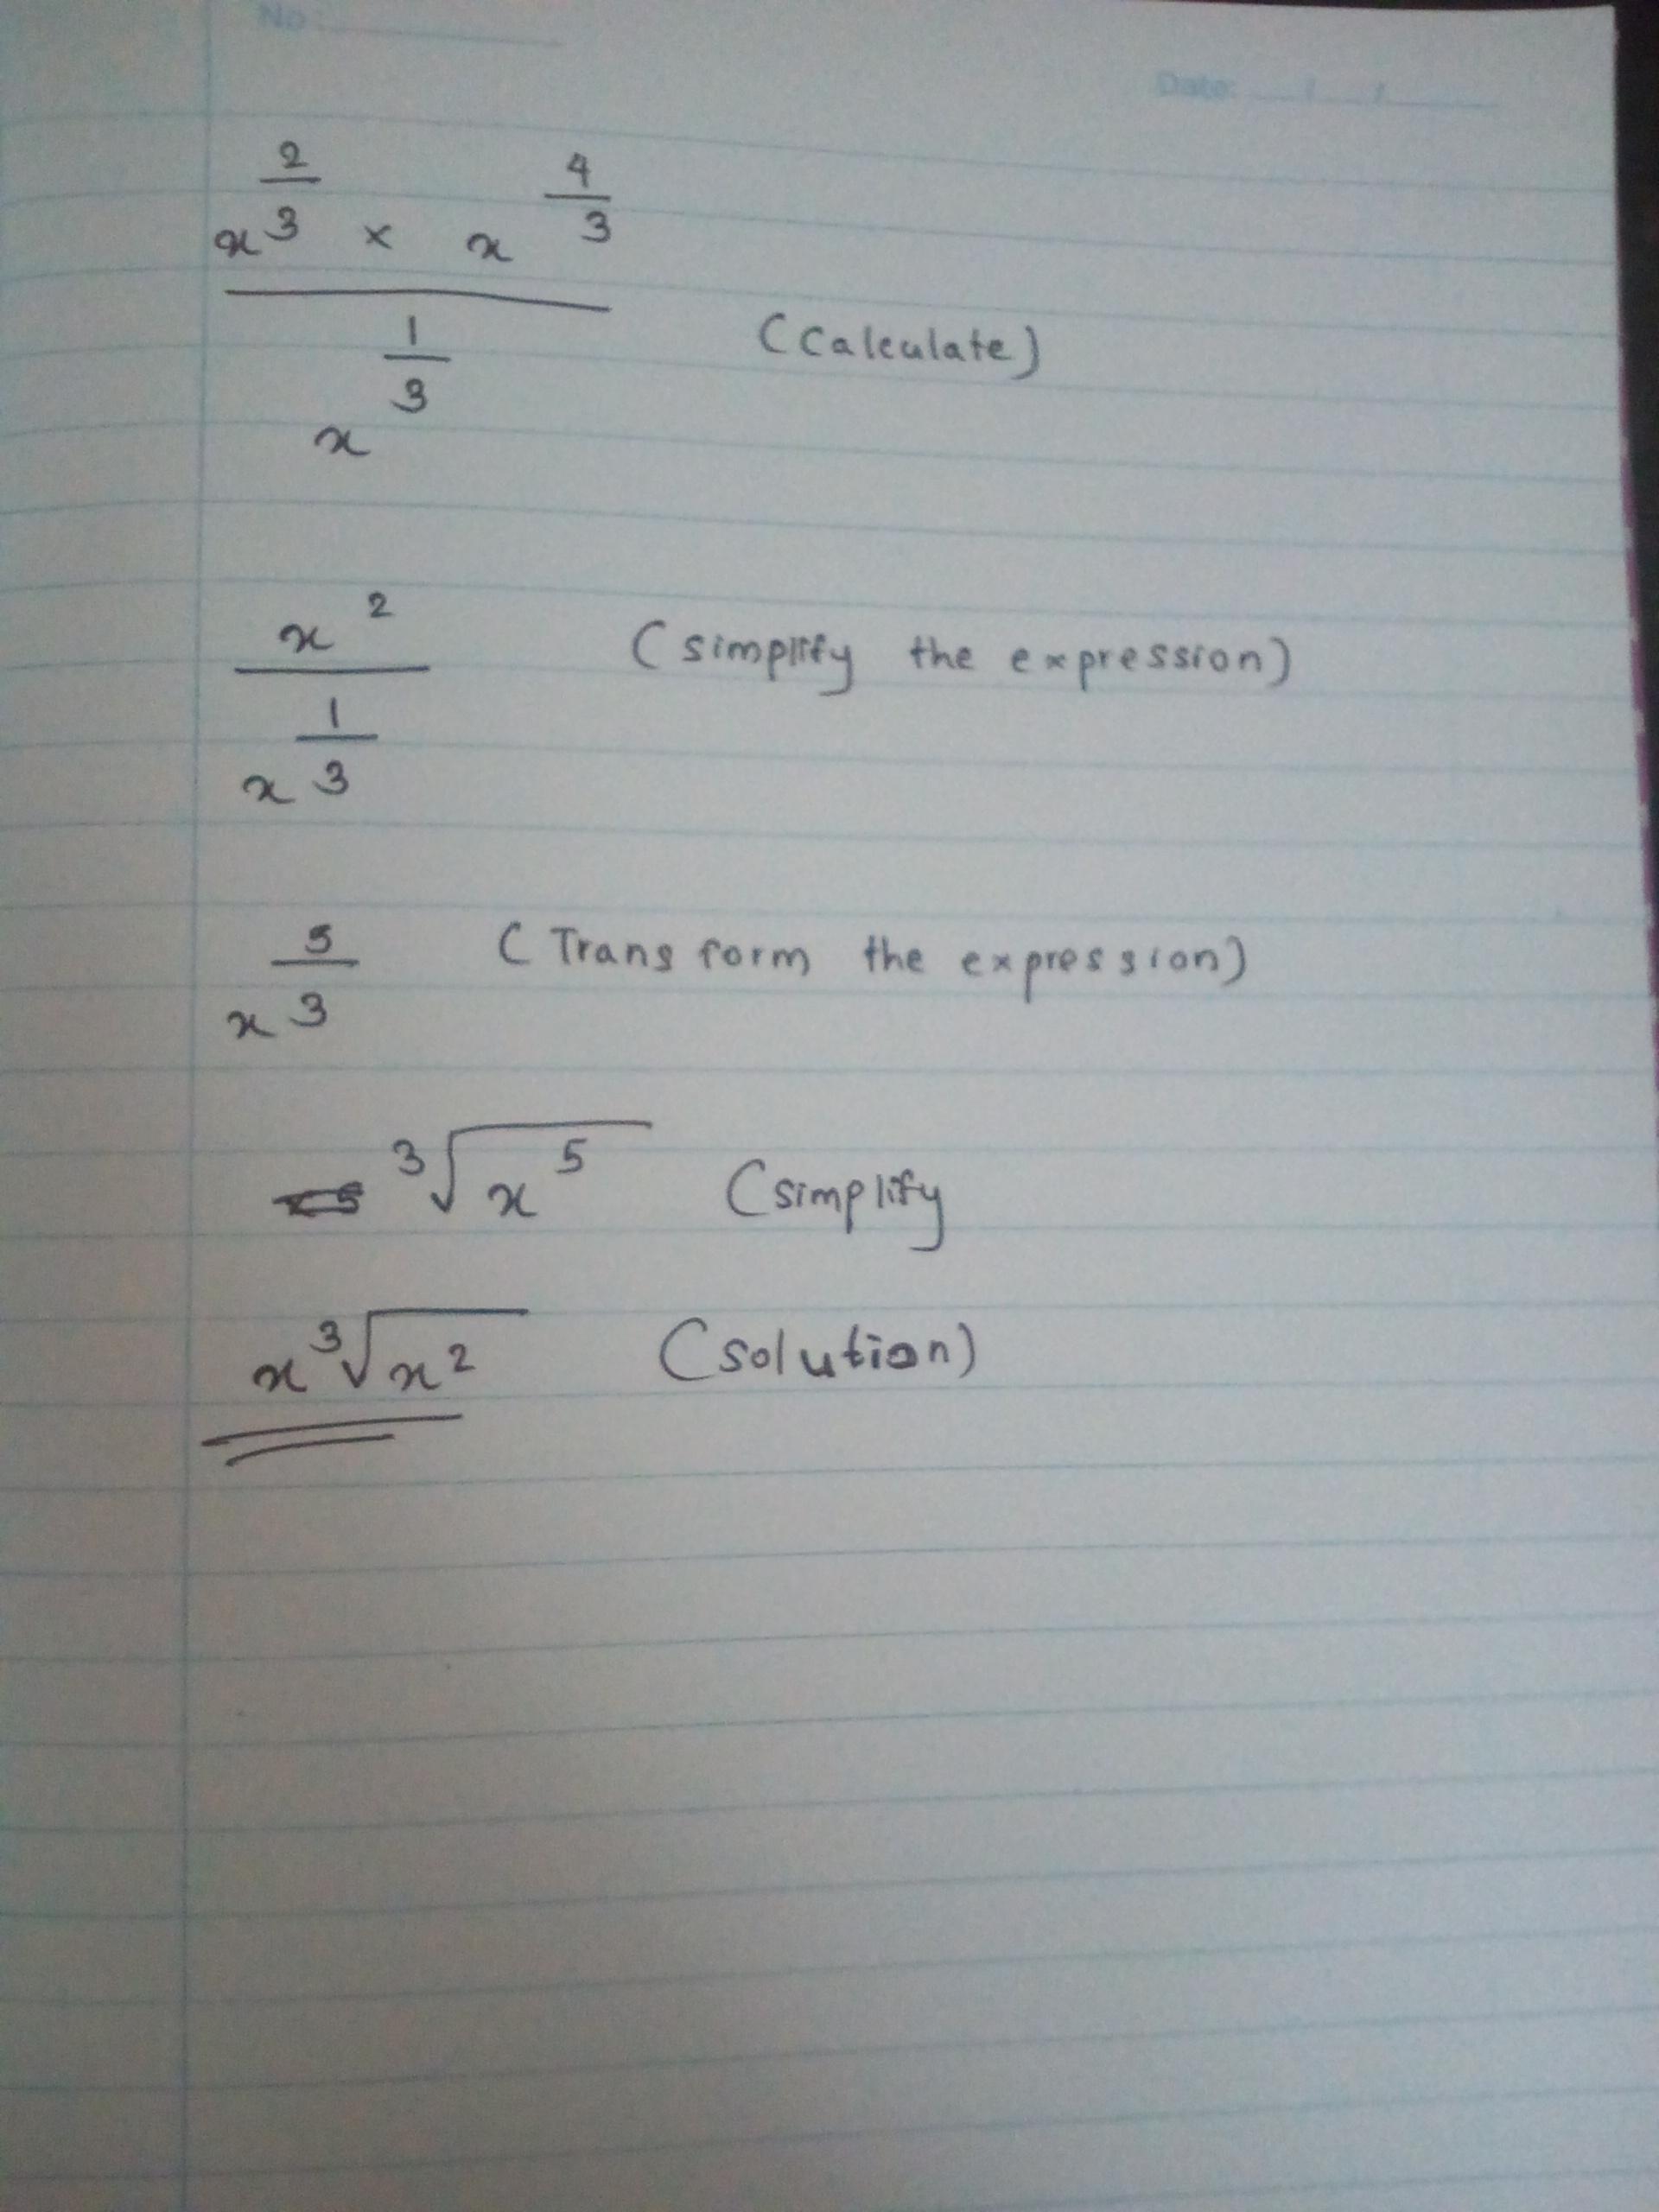 No:
Date: / /
x^(2/3) × x^(4/3)
x^(1/3) (Calculate)
x^2 (simplify the expression)
x^(1/3)
x^(5/3) (Transform the expression)
³√x^5 (simplify
x ³√x^2 (solution)